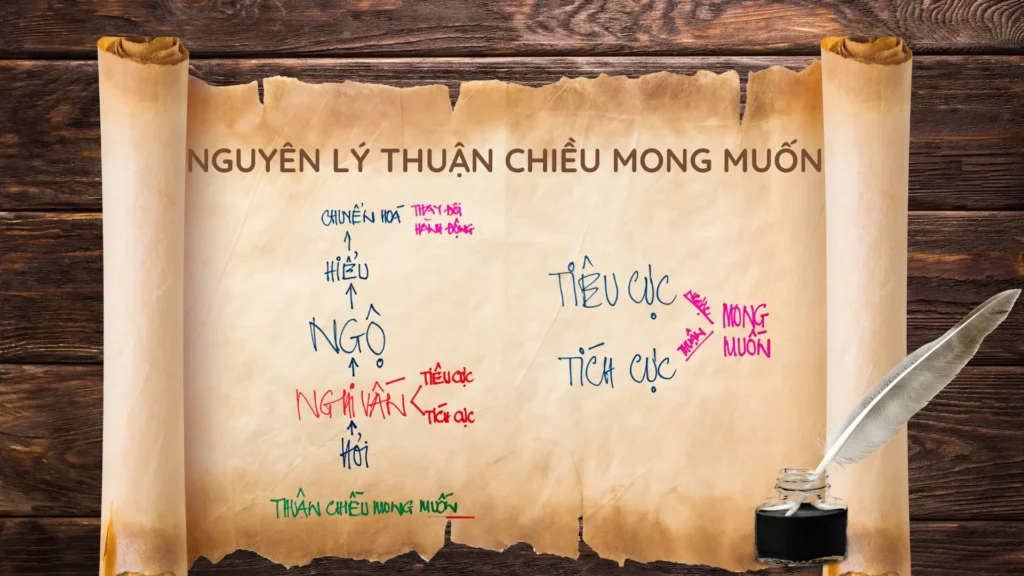 NGUYÊN LÝ THUẬN CHIỀU MONG MUỐN
CHUYỂN HOÁ
THAY ĐỔI
HÀNH ĐỘNG
HIỂU
NGỘ
NGHI VẤN
TIÊU CỰC
TÍCH CỰC
HỎI
THUẬN CHIỀU MONG MUỐN
TIÊU CỰC
TÍCH CỰC
THUẬN
MONG
MUỐN